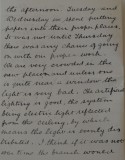 the afternoon. Tuesday and
Wednesday in soon putting
paper into their proper places,
it was not until Thursday
there was any chance of going
on with proper work.
We are very crowded in the
one place and unless one
is quite near a window the
light is very bad. The artificial
lighting is good, the system
being electric light reflected
from the ceiling by which
means the light is evenly dis-
tributed. I think it is was not
one time the branch would